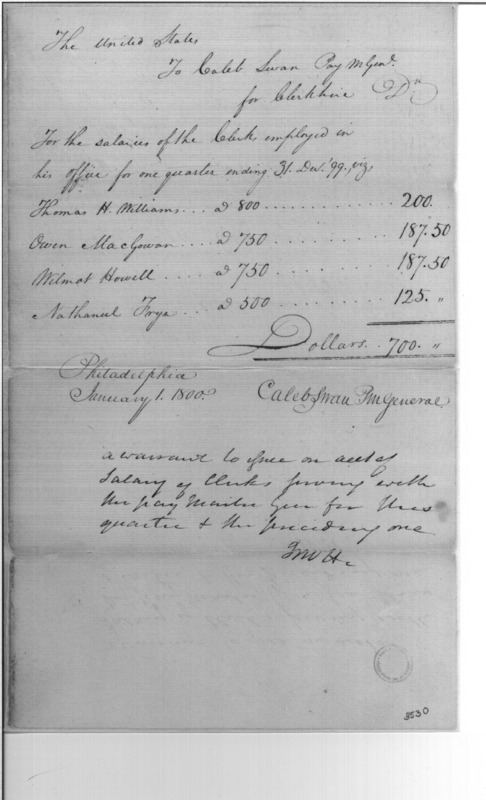 The United States
To Caleb Swan Pay M Genl.
for Clerkhire Dr.
For the salaries of the Clerks employed in
his office for one quarter ending 31. Decr. '99. viz,
Thomas H. Williams... a 800 ............ 200.
Owen MacGowan... a 750 ............ 187.50
Wilmot Howell.... a 750 ............ 187.50
Nathaniel Frye... a 500 ............ 125. "
Dollars.. 700. "
Philadelphia
January 1. 1800.
Caleb Swan PM General
a warrant to on acct of
Salary of Clerks with
the pay Master Gen for this
quarter & the preceding one
3530